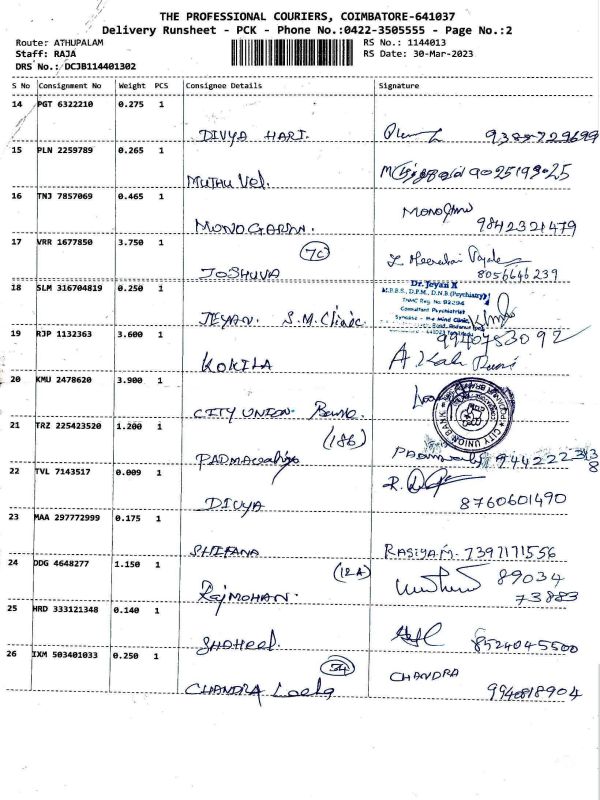 THE PROFESSIONAL COURIERS, COIMBATORE-641037
Delivery Runsheet - PCK - Phone No.:0422-3505555 - Page No.:2
Route: ATHUPALAM RS No.: 1144013
Staff: RAJA RS Date: 30-Mar-2023
DRS No.: DCJB114401302
S No Consignment No Weight PCS Consignee Details Signature
14 PGT 6322210 0.275 1
DIVYA HARI.
15 PLN 2259789 0.265 1
MUTHU Vel. 9025199025
16 TNJ 7857069 0.465 1
MONOGARAN. 9842321479
17 VRR 1677850 3.750 1
7C
JOSHUVA 8056646239
18 SLM 316704819 0.250 1
Dr. Jeyan A
M.B.B.S., D.P.M., D.N.B (Psychiatry)
Consultant Psychiatrist
JEYAN. S.M. Clinic
19 RJP 1132363 3.600 1
9940783092
KOKILA
20 KMU 2478620 3.900 1
CITY UNION Bank. CITY UNION BANK
21 TRZ 225423520 1.200 1
(186)
22 TVL 7143517 0.009 1
DIVYA 8760601490
23 MAA 297772999 0.175 1
SHIFANA RASIYAM. 7397171556
24 DDG 4648277 1.150 1
(12A) 89034
RajMOHAN. 73883
25 HRD 333121348 0.140 1
SHAHeel. 8524045500
26 IXM 503401033 0.250 1
54 CHANDRA
CHANDRA 9940818904